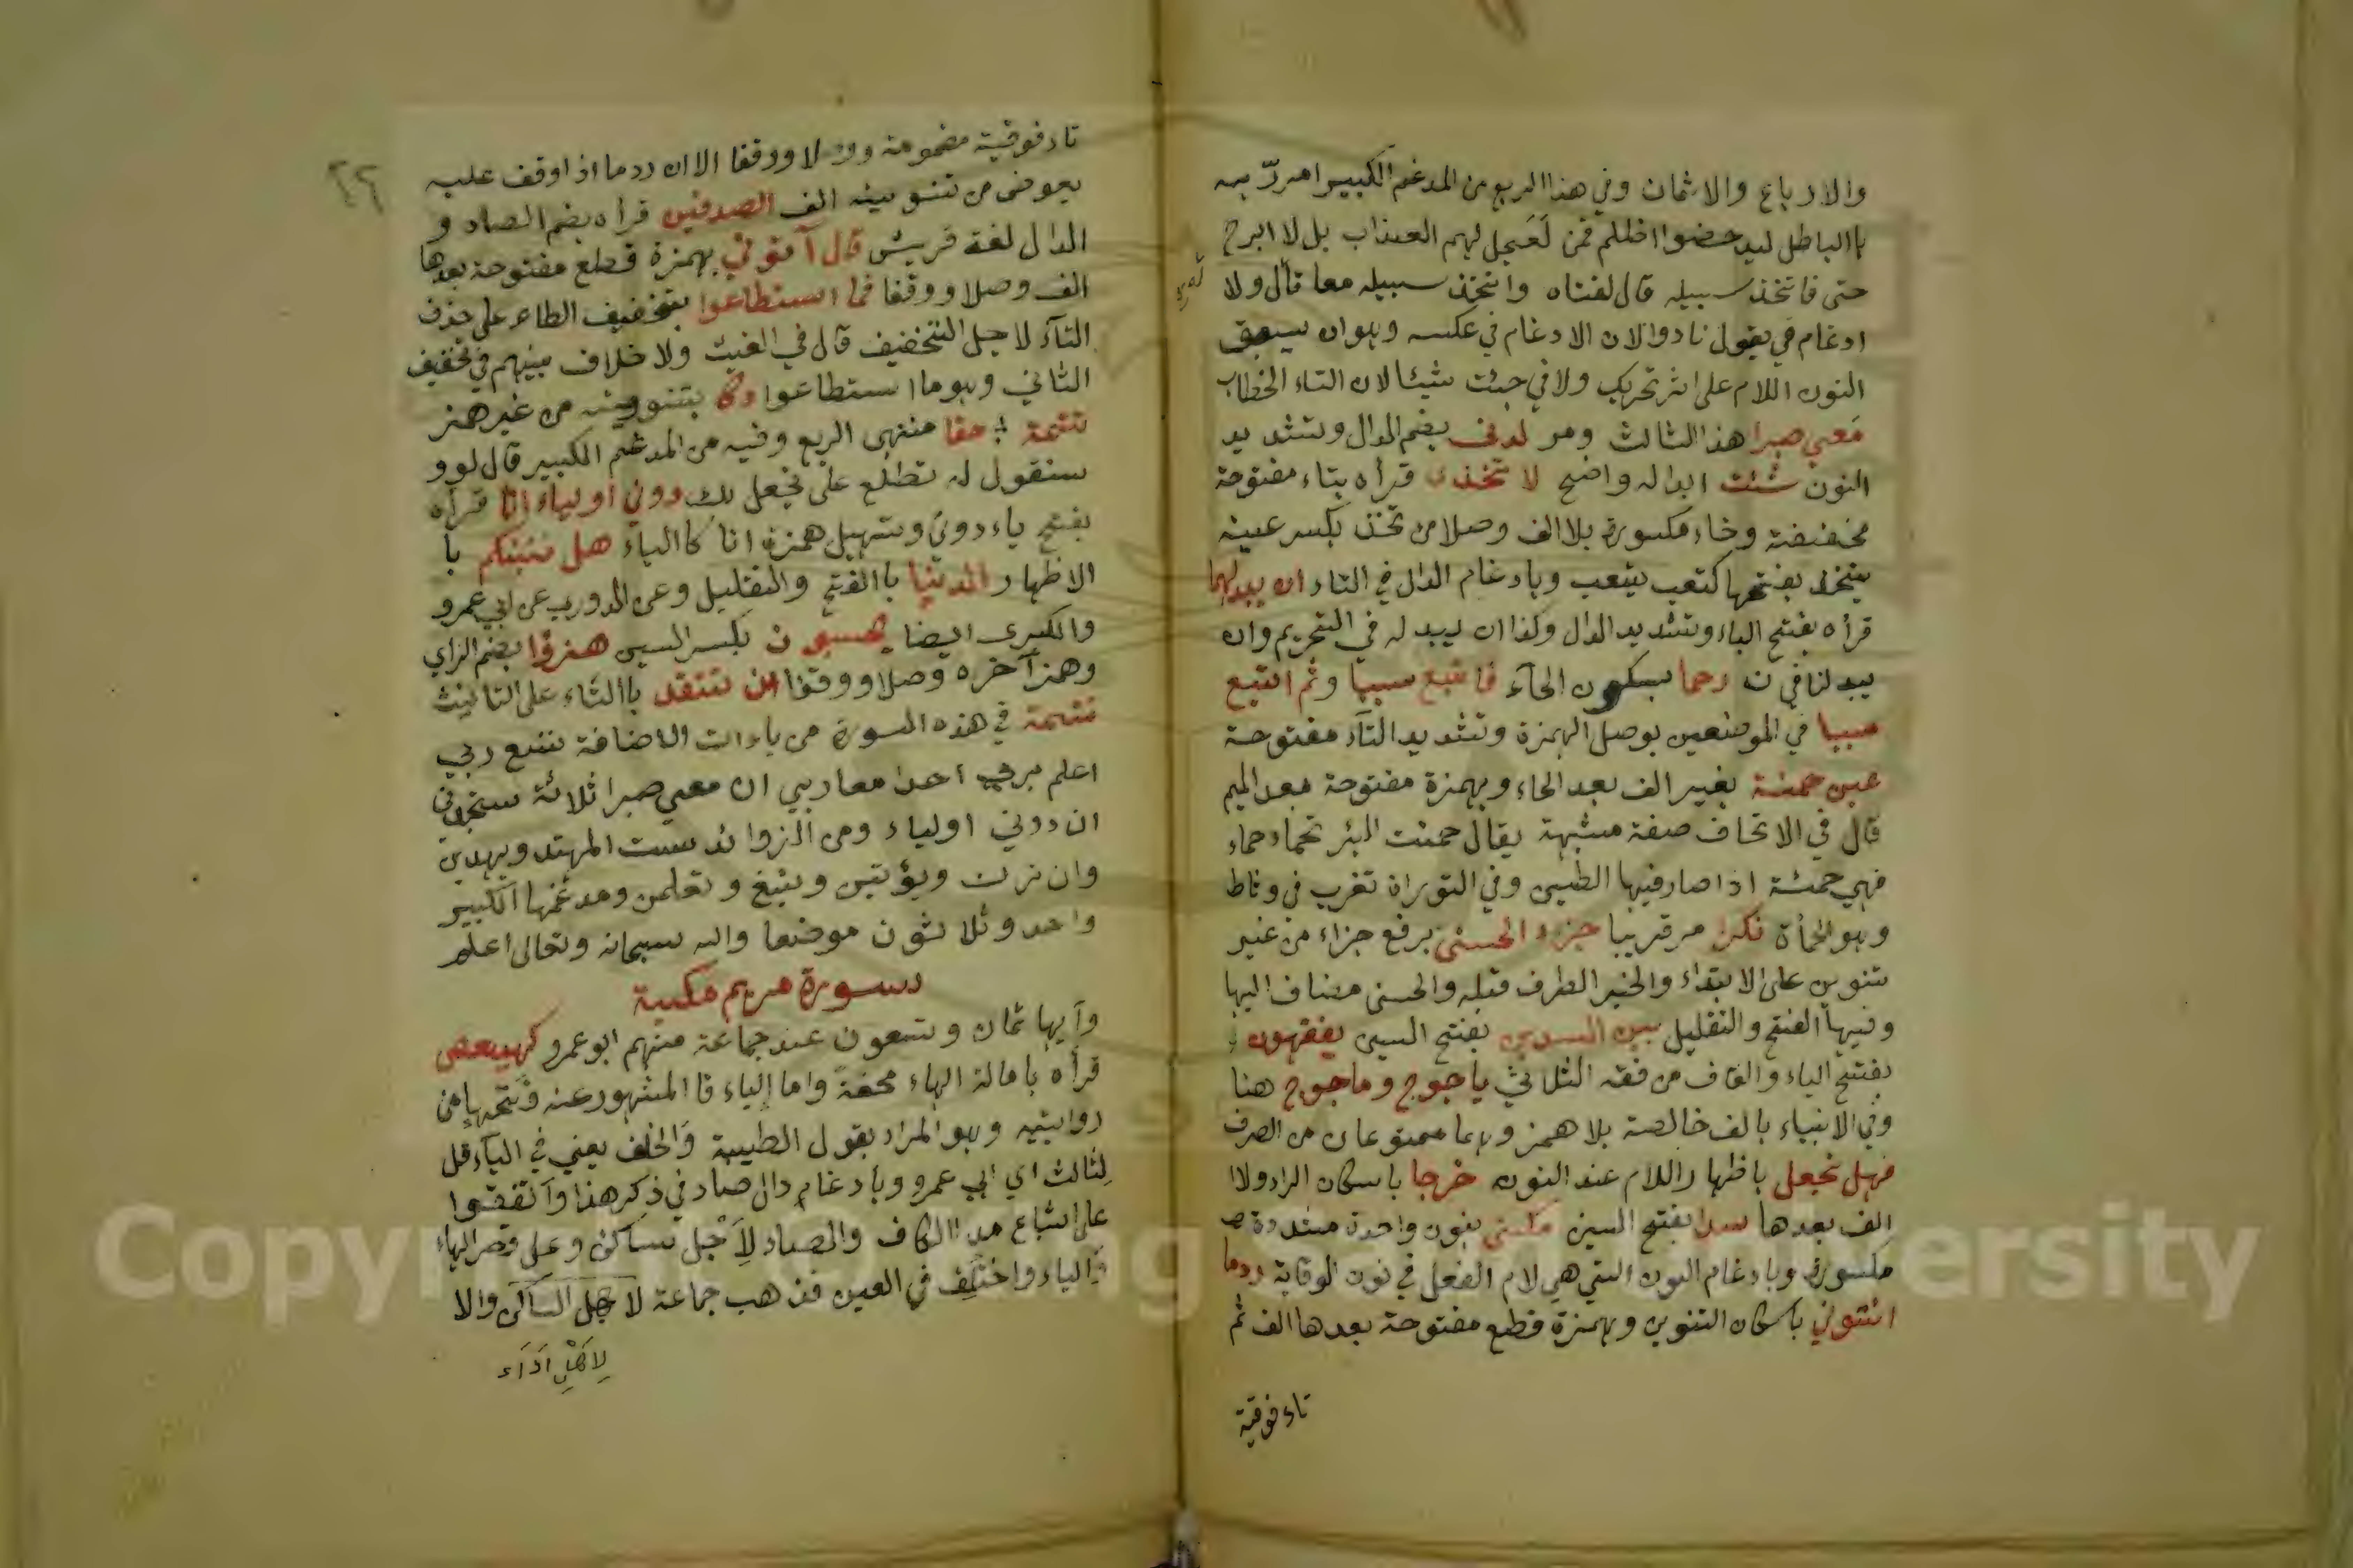 والارباع والاثمان وفي هذا الربع من المدغم الكبير امر ربه
باالباطل ليدحضوا اظلم ممن لعجل لهم العذاب بل لا ابرح
حتى فاتخذ سبيله قال لفتاه واتخذ سبيله معا قال ولا
ادغام في يقول نادوا لان الادغام في عكسه وهو ان يسبق
النون اللام على اثر تحريك ولا في جئت شيئا لان التاء الخطاب
معي صبرا هذا الثالث ومر لدني بضم الدال وتشديد
النون شئت ابداله واضح لا تخذت قرأه بتاء مفتوحة
مخففة وخاء مكسورة بلا الف وصلا من تخذ بكسر عينه
يتخذ بفتحها كتعب يتعب وبادغام الذال في التاء ان يبدلهما
قرأه بفتح الباء وتشديد الدال وكذا ان يبدله في التحريم وان
يبدلنا في ن رحما بسكون الحآء فاتبع سببا وثم اتبع
سببا في الموضعين بوصل الهمزة وتشديد التآء مفتوحة
عين حمئة بغير الف بعد الحاء وبهمزة مفتوحة بعد الميم
قال في الاتحاف صفة مشبهة يقال حمئت البئر تحماء حماء
فهي حمئة اذا صار فيها الطين وفي التوراة تغرب في وثاط
وهو الحمأة نكرا مر قريبا جزاء الحسنى برفع جزاء من غير
تنوين على الابتداء والخبر الظرف قبله والحسنى مضاف اليها
وفيها الفتح والتقليل بين السدين بفتح السين يفقهون
بفتح الياء والقاف من فقه الثلاثي ياجوج وماجوج هنا
وفي الانبياء بالف خالصة بلا همز وهما ممنوعان من الصرف
فهل نجعل باظهار اللام عند النون خرجا باسكان الراء ولا
الف بعدها سدا بفتح السين مكني بنون واحدة مشددة
مكسورة وبادغام النون التي هي لام الفعل في نون الوقاية ردما
ائتوني باسكان التنوين وبهمزة قطع مفتوحة بعدها الف ثم
تاء فوقية
٢٦
تاء فوقية مضمومة وصلا ووقفا الا ان ردما اذا وقف عليه
يعوض من تنوينه الف الصدفين قرأه بضم الصاد و
الدال لغة قريش قال آتوني بهمزة قطع مفتوحة بعدها
الف وصلا ووقفا فما اسطاعوا بتخفيف الطاء على حذف
التآء لاجل التخفيف قال في الغيث ولا خلاف بينهم في تخفيف
الثاني وهو وما استطاعوا دكا بتنوينه من غير همز
تتمة حقا منتهى الربع وفيه من المدغم الكبير قال لو و
سنقول له تطلع على نجعل لك دوني اولياء انا قرأه
بفتح ياء دوني وتسهيل همزة انا كاالياء هل ننبئكم با
الاظهار الدنيا باالفتح والتقليل وعن الدوري عن ابي عمرو
والكبرى ايضا يحسبون بكسر السين هزؤا بضم الزاي
وهمز آخره وصلا ووقفا ان تنفد باالتاء على التانيث
تتمة في هذه السورة من ياءات الاضافة تسع ربي
اعلم بربي احدا معا ربي ان معي صبرا ثلاثة ستجدني
ان دوني اولياء ومن الزوائد ست المهتد ويهدين
وان ترن ويؤتين ونبغ وتعلمن ومدغمها الكبير
واحد وثلاثون موضعا والله سبحانه وتعالى اعلم
سورة مريم مكية
وآيها ثمان وتسعون عند جماعة منهم ابو عمرو كهيعص
قرأه بامالة الهاء محضة واما الياء فا المشهور عنه فتحها من
روايتيه وهو المراد بقول الطيبة والخلف يعني في اليآء قل
لثالث اي ابي عمرو وبادغام دال صاد في ذكر هذا واتفقوا
على اشباع مد االكاف والصاد لاجل تساكن وعلى قصر الهاء
والياء واختلف في العين فذهب جماعة لاجل الساكن والا
لاهل اداء
Copyright © King Saud University